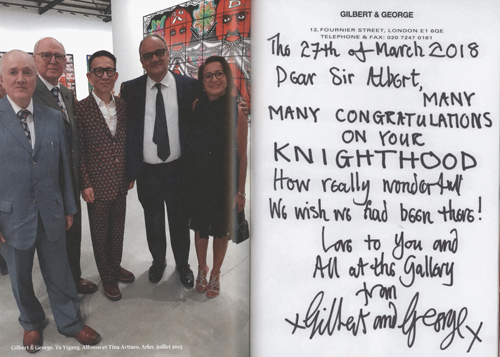 Gilbert & George, Yu Yigang, Alfonso et Tina Artiaco, Arles, Juillet 2015
GILBERT & GEORGE
12, FOURNIER STREET, LONDON E1 6QE
TELEPHONE & FAX: 020 7247 0161
The 27th of March 2018
Dear Sir Albert,
MANY
MANY CONGRATULATIONS
ON YOUR
KNIGHTHOOD
How really wonderfull
We wish we had been there!
Love to You and
All at the Gallery
from
x Gilbert and George x